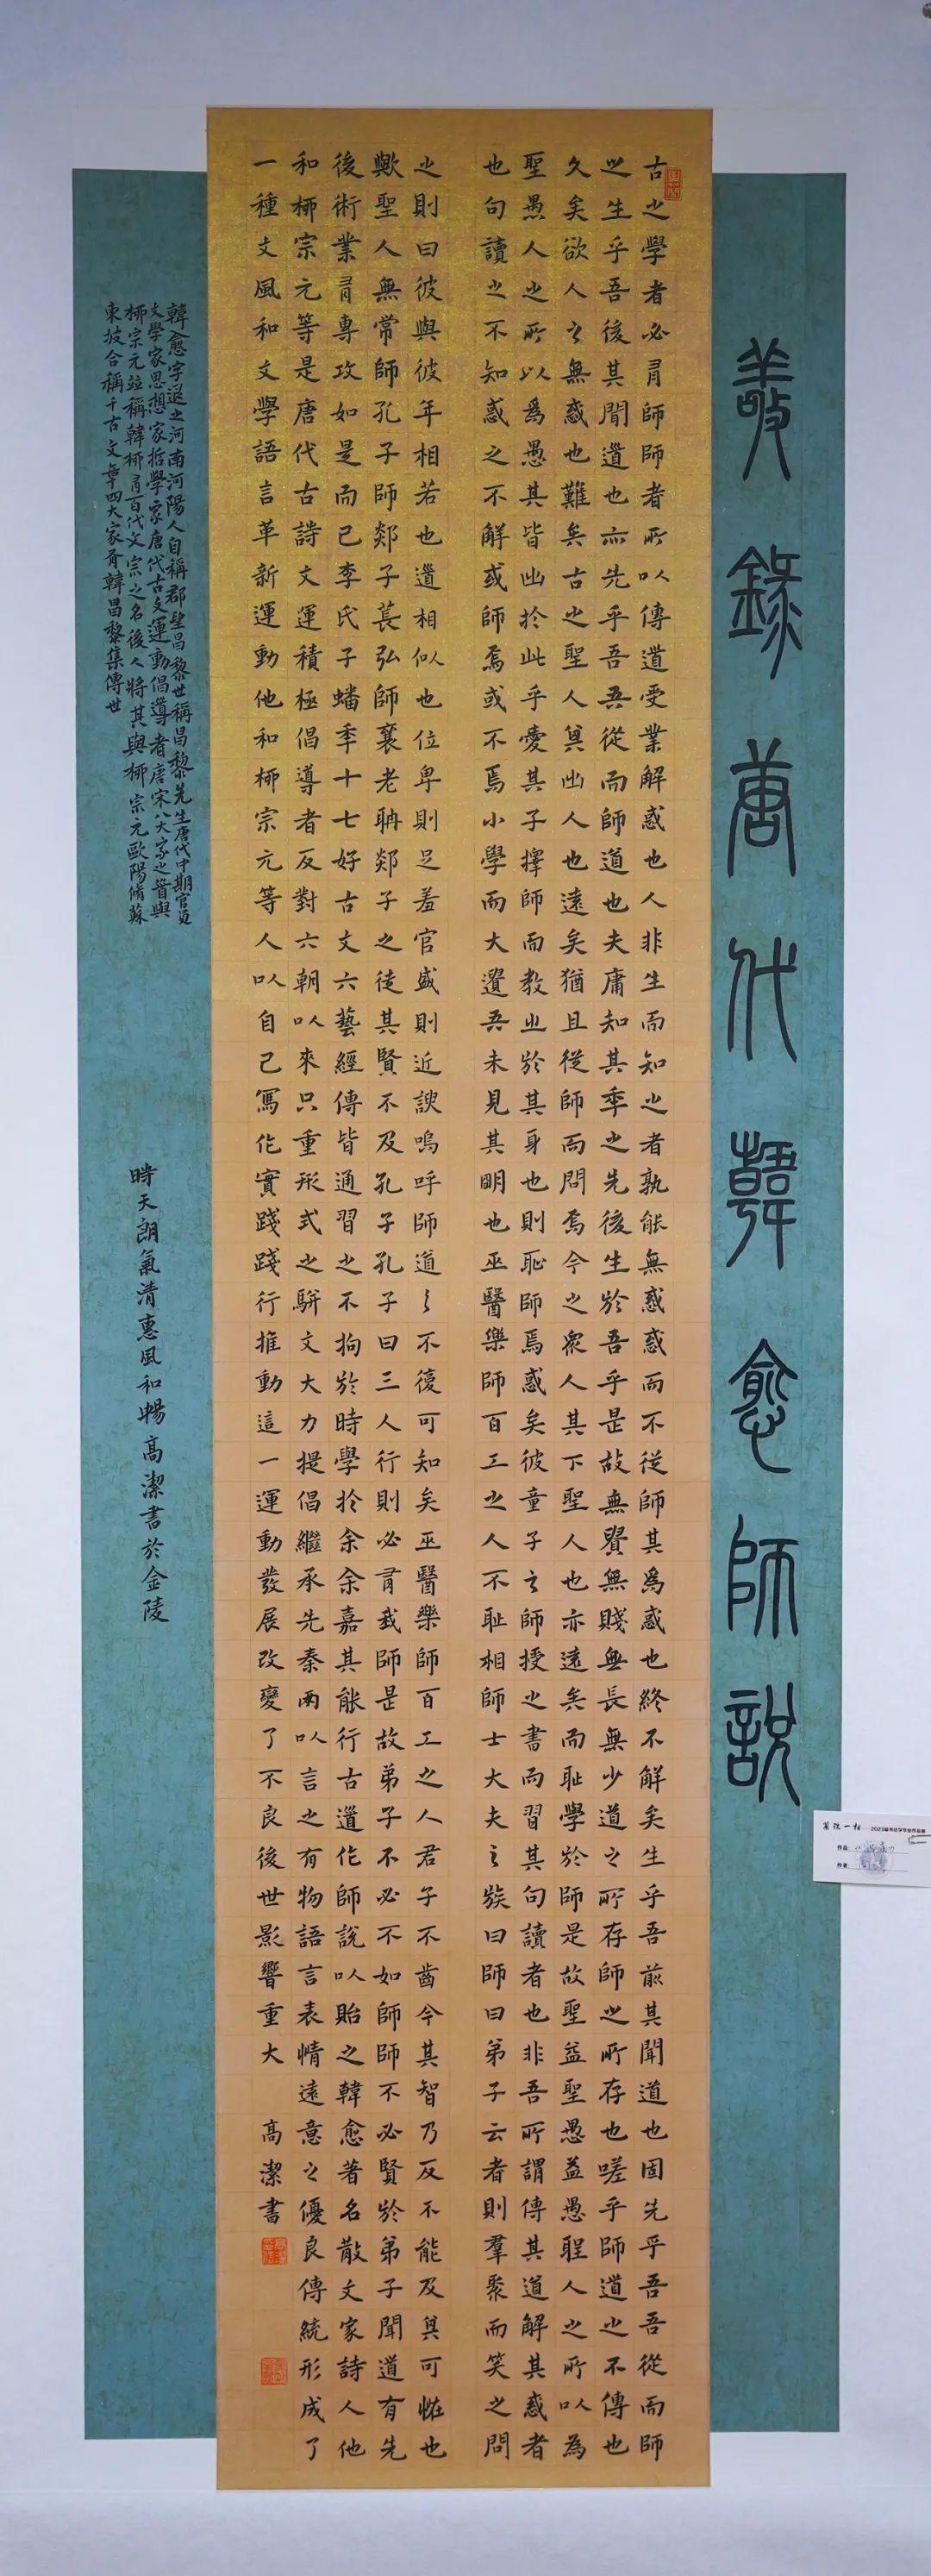 敬錄唐代韓愈師說
古之學者必有師師者所以傳道受業解惑也人非生而知之者孰能無惑惑而不從師其為惑也終不解矣生乎吾前其聞道也固先乎吾吾從而師
之生乎吾後其聞道也亦先乎吾吾從而師道也夫庸知其年之先後生於吾乎是故無貴無賤無長無少道之所存師之所存也嗟乎師道之不傳也
久矣欲人之無惑也難矣古之聖人其出人也遠矣猶且從師而問焉今之眾人其下聖人也亦遠矣而恥學於師是故聖益聖愚益愚聖人之所以為
聖愚人之所以為愚其皆出於此乎愛其子擇師而教之於其身也則恥師焉惑矣彼童子之師授之書而習其句讀者也非吾所謂傳其道解其惑者
也句讀之不知惑之不解或師焉或不焉小學而大遺吾未見其明也巫醫樂師百工之人不恥相師士大夫之族曰師曰弟子云者則羣聚而笑之問
之則曰彼與彼年相若也道相似也位卑則足羞官盛則近諛嗚呼師道之不復可知矣巫醫樂師百工之人君子不齒今其智乃反不能及其可怪也
歟聖人無常師孔子師郯子萇弘師襄老聃郯子之徒其賢不及孔子孔子曰三人行則必有我師是故弟子不必不如師師不必賢於弟子聞道有先
後術業有專攻如是而已李氏子蟠年十七好古文六藝經傳皆通習之不拘於時學於余余嘉其能行古道作師說以貽之韓愈著名散文家詩人他
和柳宗元等是唐代古詩文運積極倡導者反對六朝以來只重形式之駢文大力提倡繼承先秦兩以言之有物語言表情遠意之優良傳統形成了
一種文風和文學語言革新運動他和柳宗元等人以自己寫作實踐踐行推動這一運動發展改變了不良後世影響重大 高潔書
韓愈字退之河南河陽人自稱郡望昌黎世稱昌黎先生唐代中期官員
文學家思想家哲學家唐代古文運動倡導者唐宋八大家之首與
柳宗元並稱韓柳有百代文宗之名後人將其與柳宗元歐陽脩蘇
東坡合稱千古文章四大家有韓昌黎集傳世
時天朗氣清惠風和暢高潔書於金陵
作品:
作者: